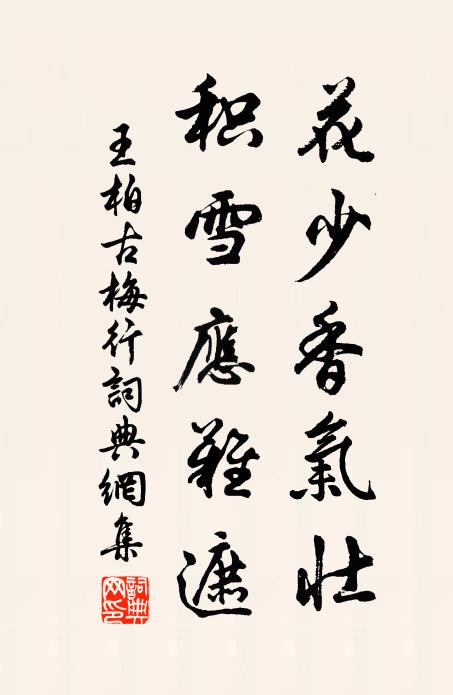 花少香氣壯
积雪應難遮
王柏古梅行詞典網集
詞典網印